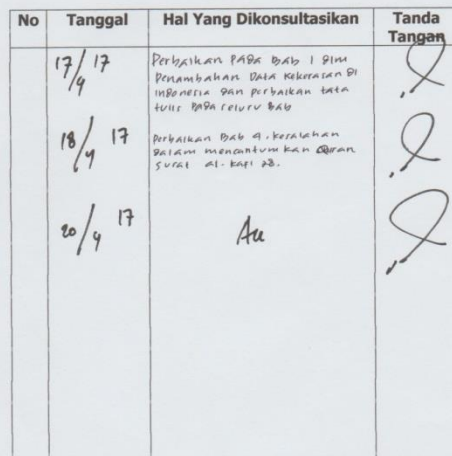 No Tanggal Hal Yang Dikonsultasikan Tanda Tangan
17/4 17
Perbaikan PADA Bab 1 dlm
Penambahan Data Kekerasan Di
Indonesia dan perbaikan tata
tulis PADA seluru Bab
18/4 17
Perbaikan Bab 4. kesalahan
dalam mencantumkan Quran
surat al-kafi 28.
20/4 17